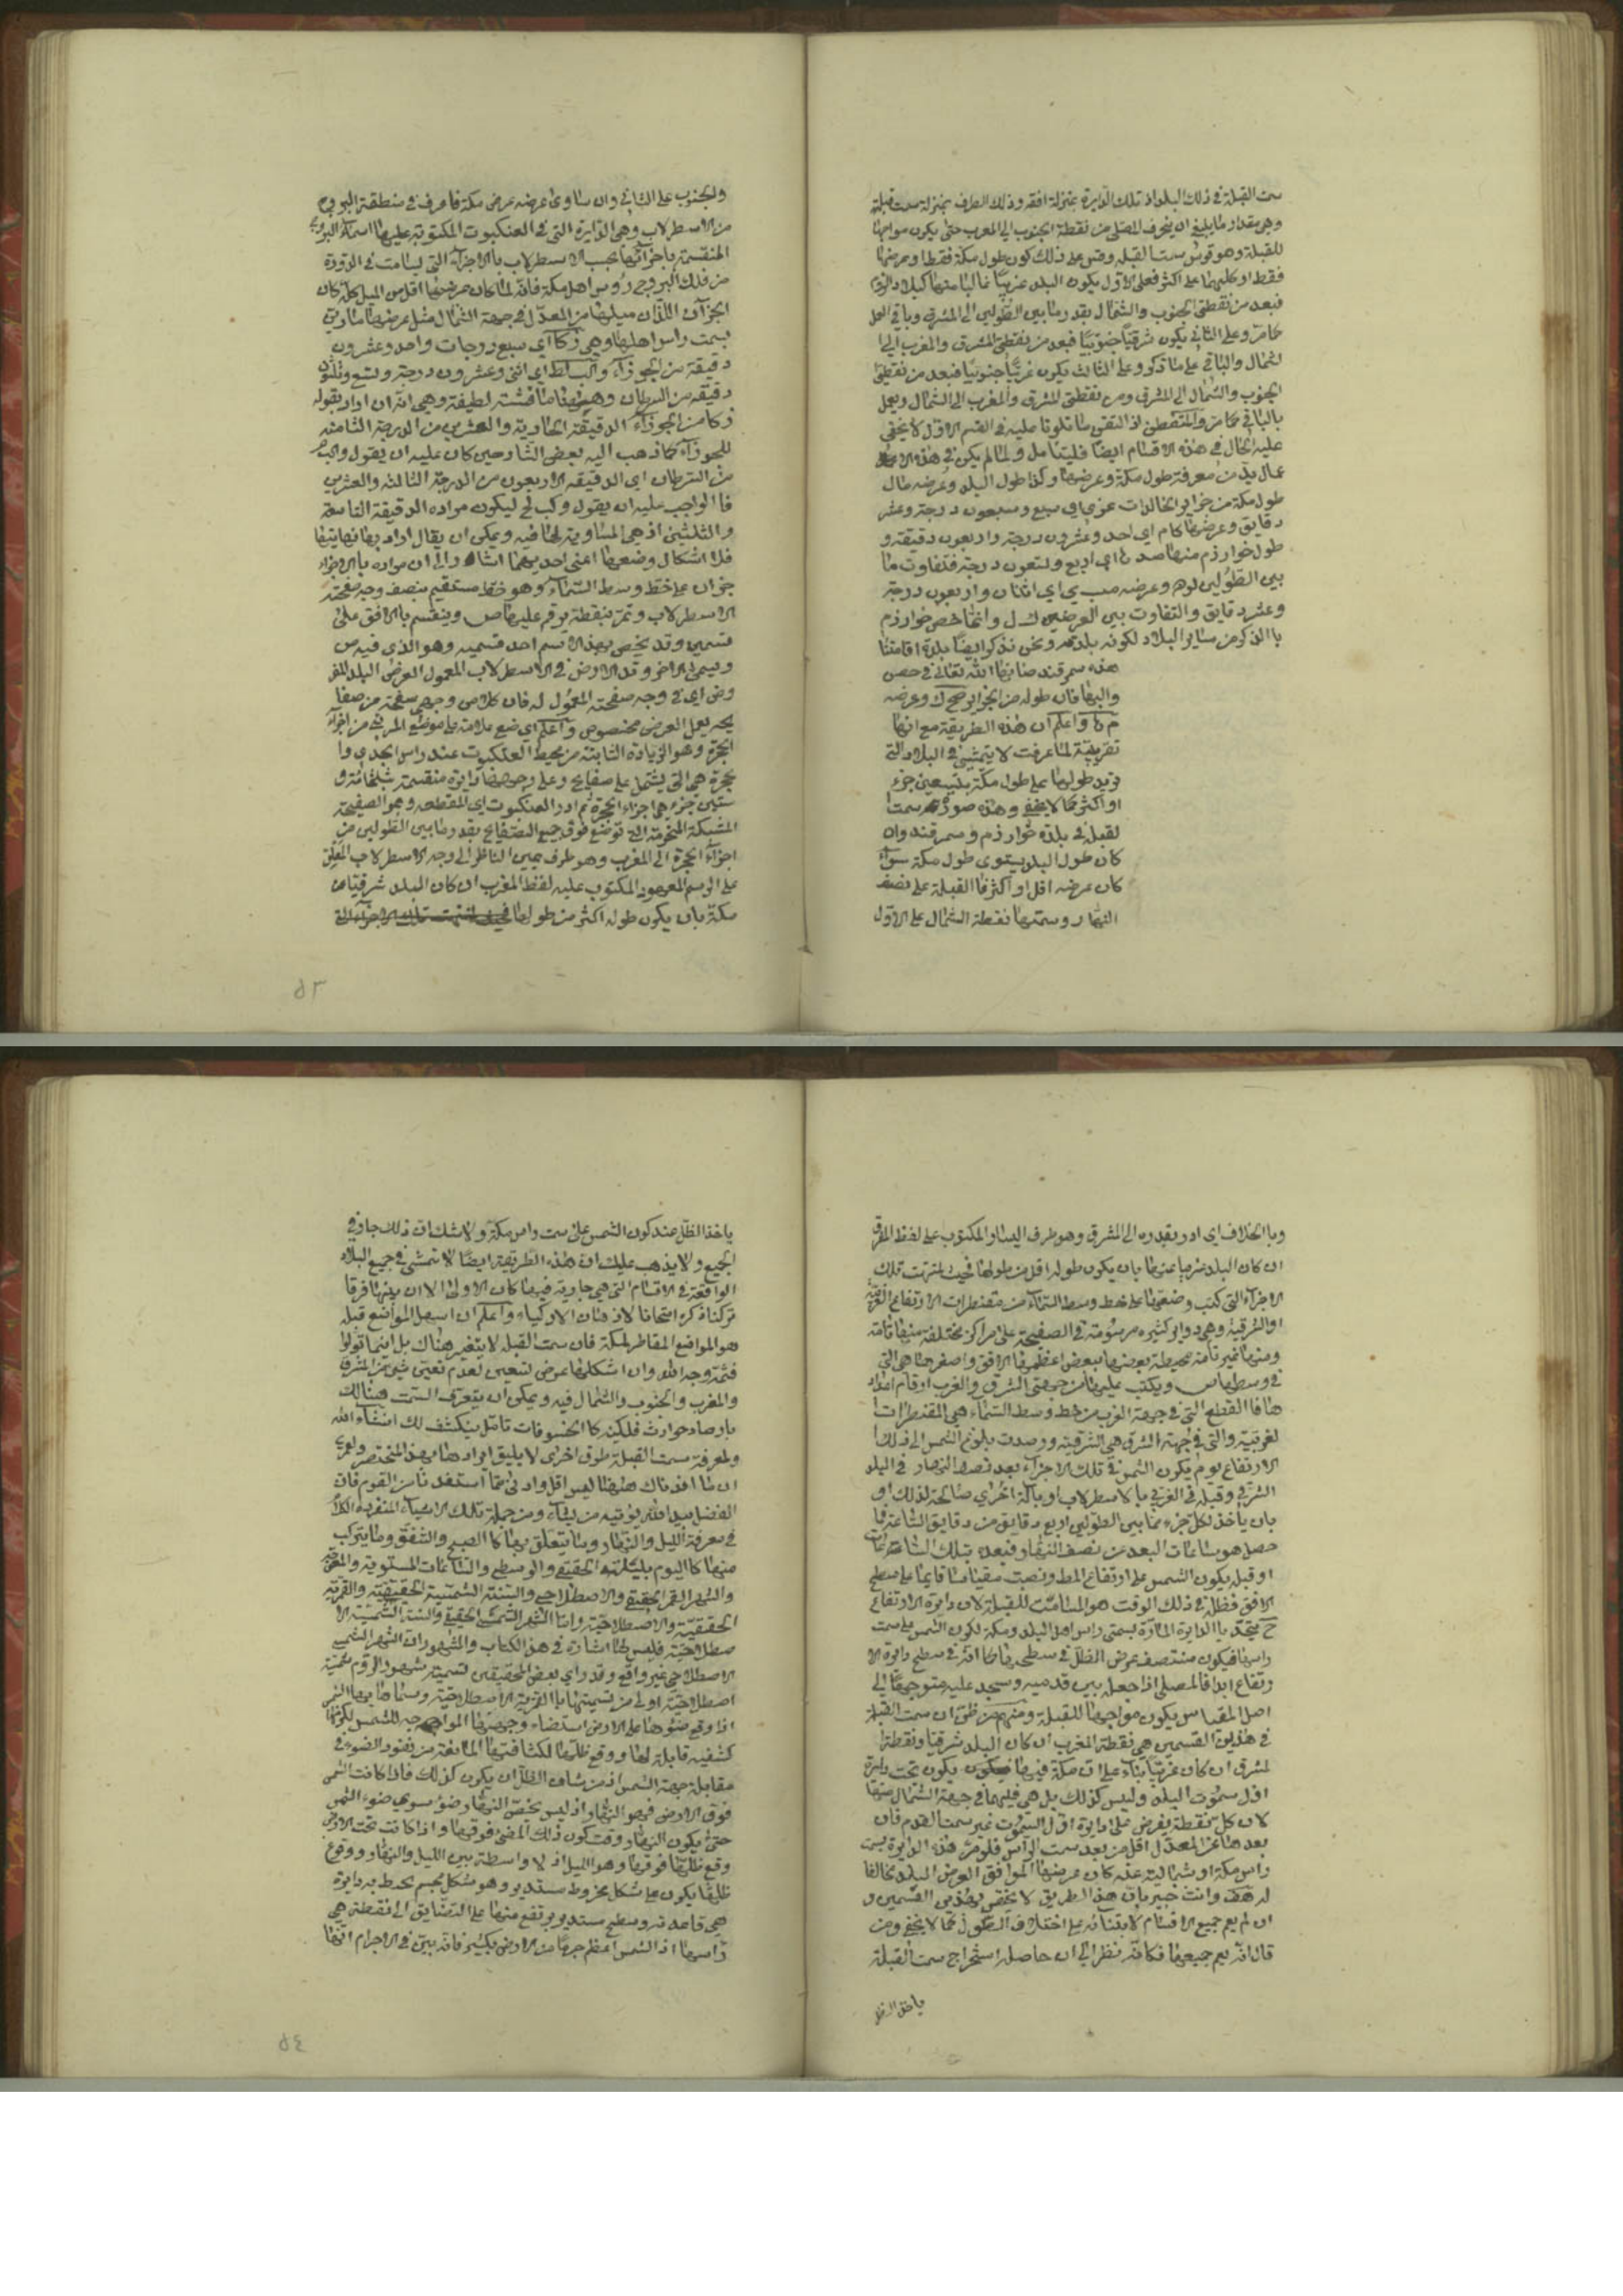 سمت القبلة في ذلك البلد اذ تلك الدايرة بمنزلة افقه وذلك الطرف بمنزلة سمت قبلته
وهي مقدار ما ينبغي ان ينحرف المصلى من نقطة الجنوب الى المغرب حتى يكون مواجها
للقبلة وهو قوس سمت القبلة وقس على ذلك كون طول مكة فقط او عرضها
فقط او كليهما على اكثر فعلى الاول يكون البلد غربيا
فبعد من نقطتى الجنوب والشمال بقدر ما بين الطولين الى المشرق وباقي العمل
كما مر وعلى الثاني يكون شرقيا جنوبيا فبعد من نقطتى المشرق والمغرب الى
الشمال والباقي على ما ذكر وعلى الثالث يكون غربيا جنوبيا فبعد من نقطتى
الجنوب والشمال الى المشرق ومن نقطتى المشرق والمغرب الى الشمال ويعمل
بالباقي كما مر والمتفطن لما تلونا عليه في القسم الاول لا يخفى
عليه الحال في هذه الاقسام ايضا فليتامل ولما لم يكن في هذه
بد من معرفة طول مكة وعرضها وكذا طول البلد وعرضه قال
طول مكة من جزاير الخالدات عزى اي سبع وسبعون درجة وعشر
دقايق وعرضها كا م اي احد وعشرون درجة واربعون دقيقة و
طول خوارزم منها صد اي اربع وتسعون درجة فتفاوت ما
بين الطولين يو ن وعرضه مب ي اي اثنان واربعون درجة
وعشر دقايق والتفاوت بين العرضين ك ل وانما خص خوارزم
بالذكر من ساير البلاد لكونه بلده ونحن نذكر ايضا بلدة اقامتنا
هذه سمرقند صانها الله تعالى في حصن
والبها فان طوله من الجزاير صح ك وعرضه
م واعلم ان هذه الطريقة مع انها
تقريبية لما عرفت لا يتمشى في البلاد التي
تزيد طولها على طول مكة بتسعين جزء
او اكثر كما لا يخفى وهذه صورة سمت ا
لقبلة في بلدة خوارزم وسمرقند وان
كان طول البلد يستوى طول مكة سواء
كان عرضه اقل او اكثر فالقبلة على نصف
النهار وسمتها نقطة الشمال على الاول
والجنوب على الثاني وان ساوى عرضه عرض مكة فاعرف في منطقة البروج
من الاسطرلاب وهي الدايرة التي في العنكبوت المكتوبة عليها اسماء البروج
المنقسمة باجزائها بحسب الاسطرلاب بالاجزاء التي يسامت في الدورة
من فلك البروج رؤس اهل مكة فانه لما كان عرضها اقل من الميل كله كان
الجزآن اللذان ميلهما من المعدل في جهة الشمال مثل عرضها مارين
بسمت راس اهلها وهي ز كا اي سبع درجات واحد وعشرون
دقيقة من الجوزاء وكب لط اي اثنى وعشرون درجة وتسع وثلثون
دقيقة من السرطان وههنا مناقشة لطيفة وهي انه ان اراد بقوله
ز كا من الجوزاء الدقيقة الحادية والعشرين من الدرجة الثامنة
للجوزاء كما ذهب اليه بعض الشارحين كان عليه ان يقول
من السرطان اي الدقيقة الاربعون من الدرجة الثالثة والعشرين
فالواجب عليه ان يقول وكب لح ليكون مراده الدقيقة التاسعة
والثلثين اذ هي المساوية لها فيه ويمكن ان يقال اراد بها نهايتها
فلا اشكال وضعها اعنى احديهما اشار الى ان مراده بالاجزاء
جزآن على خط وسط السماء وهو خط مستقيم ينصف وجه صفحة
الاسطرلاب وتمر بنقطة يرقم عليها ص وينقسم بالافق على
قسمين وقد يخص بهذا الاسم احد قسميه وهو الذي فيه ص
ويسمى الاخر وتد الارض في الاسطرلاب المعمول لعرض البلد المفر
وض اي في وجه صفحته المعمول له فان كلا من وجهي صفحة من صفا
يحه يعمل لعرض مخصوص واعلم اي ضع علامة على موضع المرى من اجزاء
الحجرة وهو الزيادة الثابتة من محيط العنكبوت عند راس الجدى وا
لحجرة هي التي يشتمل على صفايح وعلى وجهها دايرة منقسمة بثلثمائة و
ستين جزء هي اجزاء الحجرة ثم ادر العنكبوت اي المقطعة وهو الصفيحة
المشبكة المنخرقة التي توضع فوق جميع الصفايح بقدر ما بين الطولين من
اجزاء الحجرة الى المغرب وهو طرف يمين الناظر الى وجه الاسطرلاب المعلق
على الرسم المعهود المكتوب عليه لفظ المغرب ان كان البلد شرقيا من
مكة بان يكون طوله اكثر من طولها
٥٣
وبالخلاف اي ادر بقدره الى المشرق وهو طرف اليسار المكتوب على لفظ المشرق
ان كان البلد غربيا عنها بان يكون طوله اقل من طولها فحيث انتهت تلك
الاجزاء التي كنت وضعتها على خط وسط السماء من مقنطرات الارتفاع الغربية
او الشرقية وهي دواير كثيرة مرسومة في الصفيحة على مراكز مختلفة منها تامة
ومنها غير تامة محيطة بعضها ببعض اعظمها الافق واصغرها هي التي
في وسطها ص ويكتب عليها من جهتى الشرق والغرب ارقام اعداد
ها فالقطع التي في جهة الغرب من خط وسط السماء هي المقنطرات ا
لغربية والتي في جهة الشرق هي الشرقية ورصدت بلوغ الشمس الى ذلك ا
لارتفاع يوم يكون الشمس في تلك الاجزاء بعد نصف النهار في البلد
الشرقي وقبله في الغربي بالاسطرلاب او بآلة اخرى صالحة لذلك او
بان ياخذ لكل جزء مما بين الطولين اربع دقايق من دقايق الساعة فما
حصل هو ساعات البعد عن نصف النهار فبعده بتلك الساعات
او قبله يكون الشمس على ارتفاع المط ونصبت مقياسا قايما على سطح
الافق فظله في ذلك الوقت هو المسامت للقبلة لان دايرة الارتفاع
ح متحد بالدايرة المارة بسمتى راس اهل البلد ومكة لكون الشمس على سمت
راسها فيكون منتصف عرض الظل في سطحها كما انه في سطح دايرة الا
رتفاع ابدا فالمصلى اذا جعله بين قدميه وسجد عليه متوجها الى
اصل المقياس يكون مواجها للقبلة ومنهم من ظن ان سمت القبلة
في هذين القسمين هي نقطة المغرب ان كان البلد شرقيا ونقطة ا
لمشرق ان كان غربيا بناء على ان مكة فيها يكون تحت دايرة
اول سموت البلد وليس كذلك بل هي فيهما في جهة الشمال منها
لان كل نقطة يفرض على دايرة اول السموت غير سمت القدم فان
بعدها عن المعدل اقل من بعد سمت الراس فلو مر هذه الدايرة بسمت
راس مكة او شمالية عنه كان عرضها الموافق لعرض البلد مخالفا
له هف وانت خبير بان هذا الطريق لا يختص بهذين القسمين و
ان لم يعم جميع الاقسام لابتنائه على اختلاف الطول كما لا يخفى ومن
قال انه يعم جميعها فكانه نظر الى ان حاصله استخراج سمت القبلة
ياخذ الظل
ياخذ الظل عند كون الشمس على سمت راس مكة ولا شك ان ذلك جار في
الجميع ولا يذهب عليك ان هذه الطريقة ايضا لا تتمشى في جميع البلاد
الواقعة في الاقسام التي هي جارية فيها كالاولى الا ان بينهما فرقا
تركنا ذكره امتحانا لاذهان الاذكياء واعلم ان اسهل المواضع قبلة
هو المواضع المقاطر لمكة فان سمت القبلة لا يتغير هناك بل اينما تولوا
فثمة وجه الله وان اشكلها عرض تسعين لعدم تعين شئ من المشرق
والمغرب والجنوب والشمال فيه ويمكن ان يتعرف السمت هنالك
بارصاد حوادث فلكية كالخسوفات تامل ينكشف لك انشاء الله
ولمعرفة سمت القبلة طرق اخرى لا يليق ايرادها بهذا المختصر ولعمرى
ان ما افدناك ههنا ليس اقل وادنى مما استفدنا من القوم فان
الفضل بيد الله يؤتيه من يشاء ومن جملة تلك الاشياء المنفردة الكلام
في معرفة الليل والنهار وما يتعلق بهما كالصبح والشفق وما يتركب
منهما كاليوم بليلته الحقيقي والوسطى والساعات المستوية والمعوجة
والشهر القمرى الحقيقي والاصطلاحي والسنة الشمسية الحقيقية والقمرية
الحقيقية والاصطلاحية واما الشهر الشمسي الحقيقي والسنة الشمسية الا
صطلاحية فليس لها اشارة في هذا الكتاب والمشهور ان الشهر الشمسي
الاصطلاحي غير واقع وقد راى بعض المحققين تسمية شهور الروم شمسية
اصطلاحية اولى من تسميتها بالرومية الاصطلاحية
اذا وقع ضوءها على الارض استضاء وجهها المواجه للشمس لكونها
كثيفة قابلة لها ووقع ظلها لكثافتها المانعة من نفوذ الضوء في
مقابلة جهة الشمس اذ من شان الظل ان يكون كذلك فاذا كانت الشمس
فوق الارض فهو النهار اذ ليس يخص النهار ضوء سوى ضوء الشمس
حتى يكون النهار وقت كون ذلك المضئ فوقها واذا كانت تحت الارض
وقع ظلها فوقها وهو الليل اذ لا واسطة بين الليل والنهار ووقوع
ظلها يكون على شكل مخروط مستدير وهو شكل مجسم يحيط به دايرة
هي قاعدته وسطح مستدير يرتفع منها على التضايق الى نقطة هي
راسها اذ الشمس اعظم جرما من الارض بكثير فانه بين في الاجرام انها
٥٤